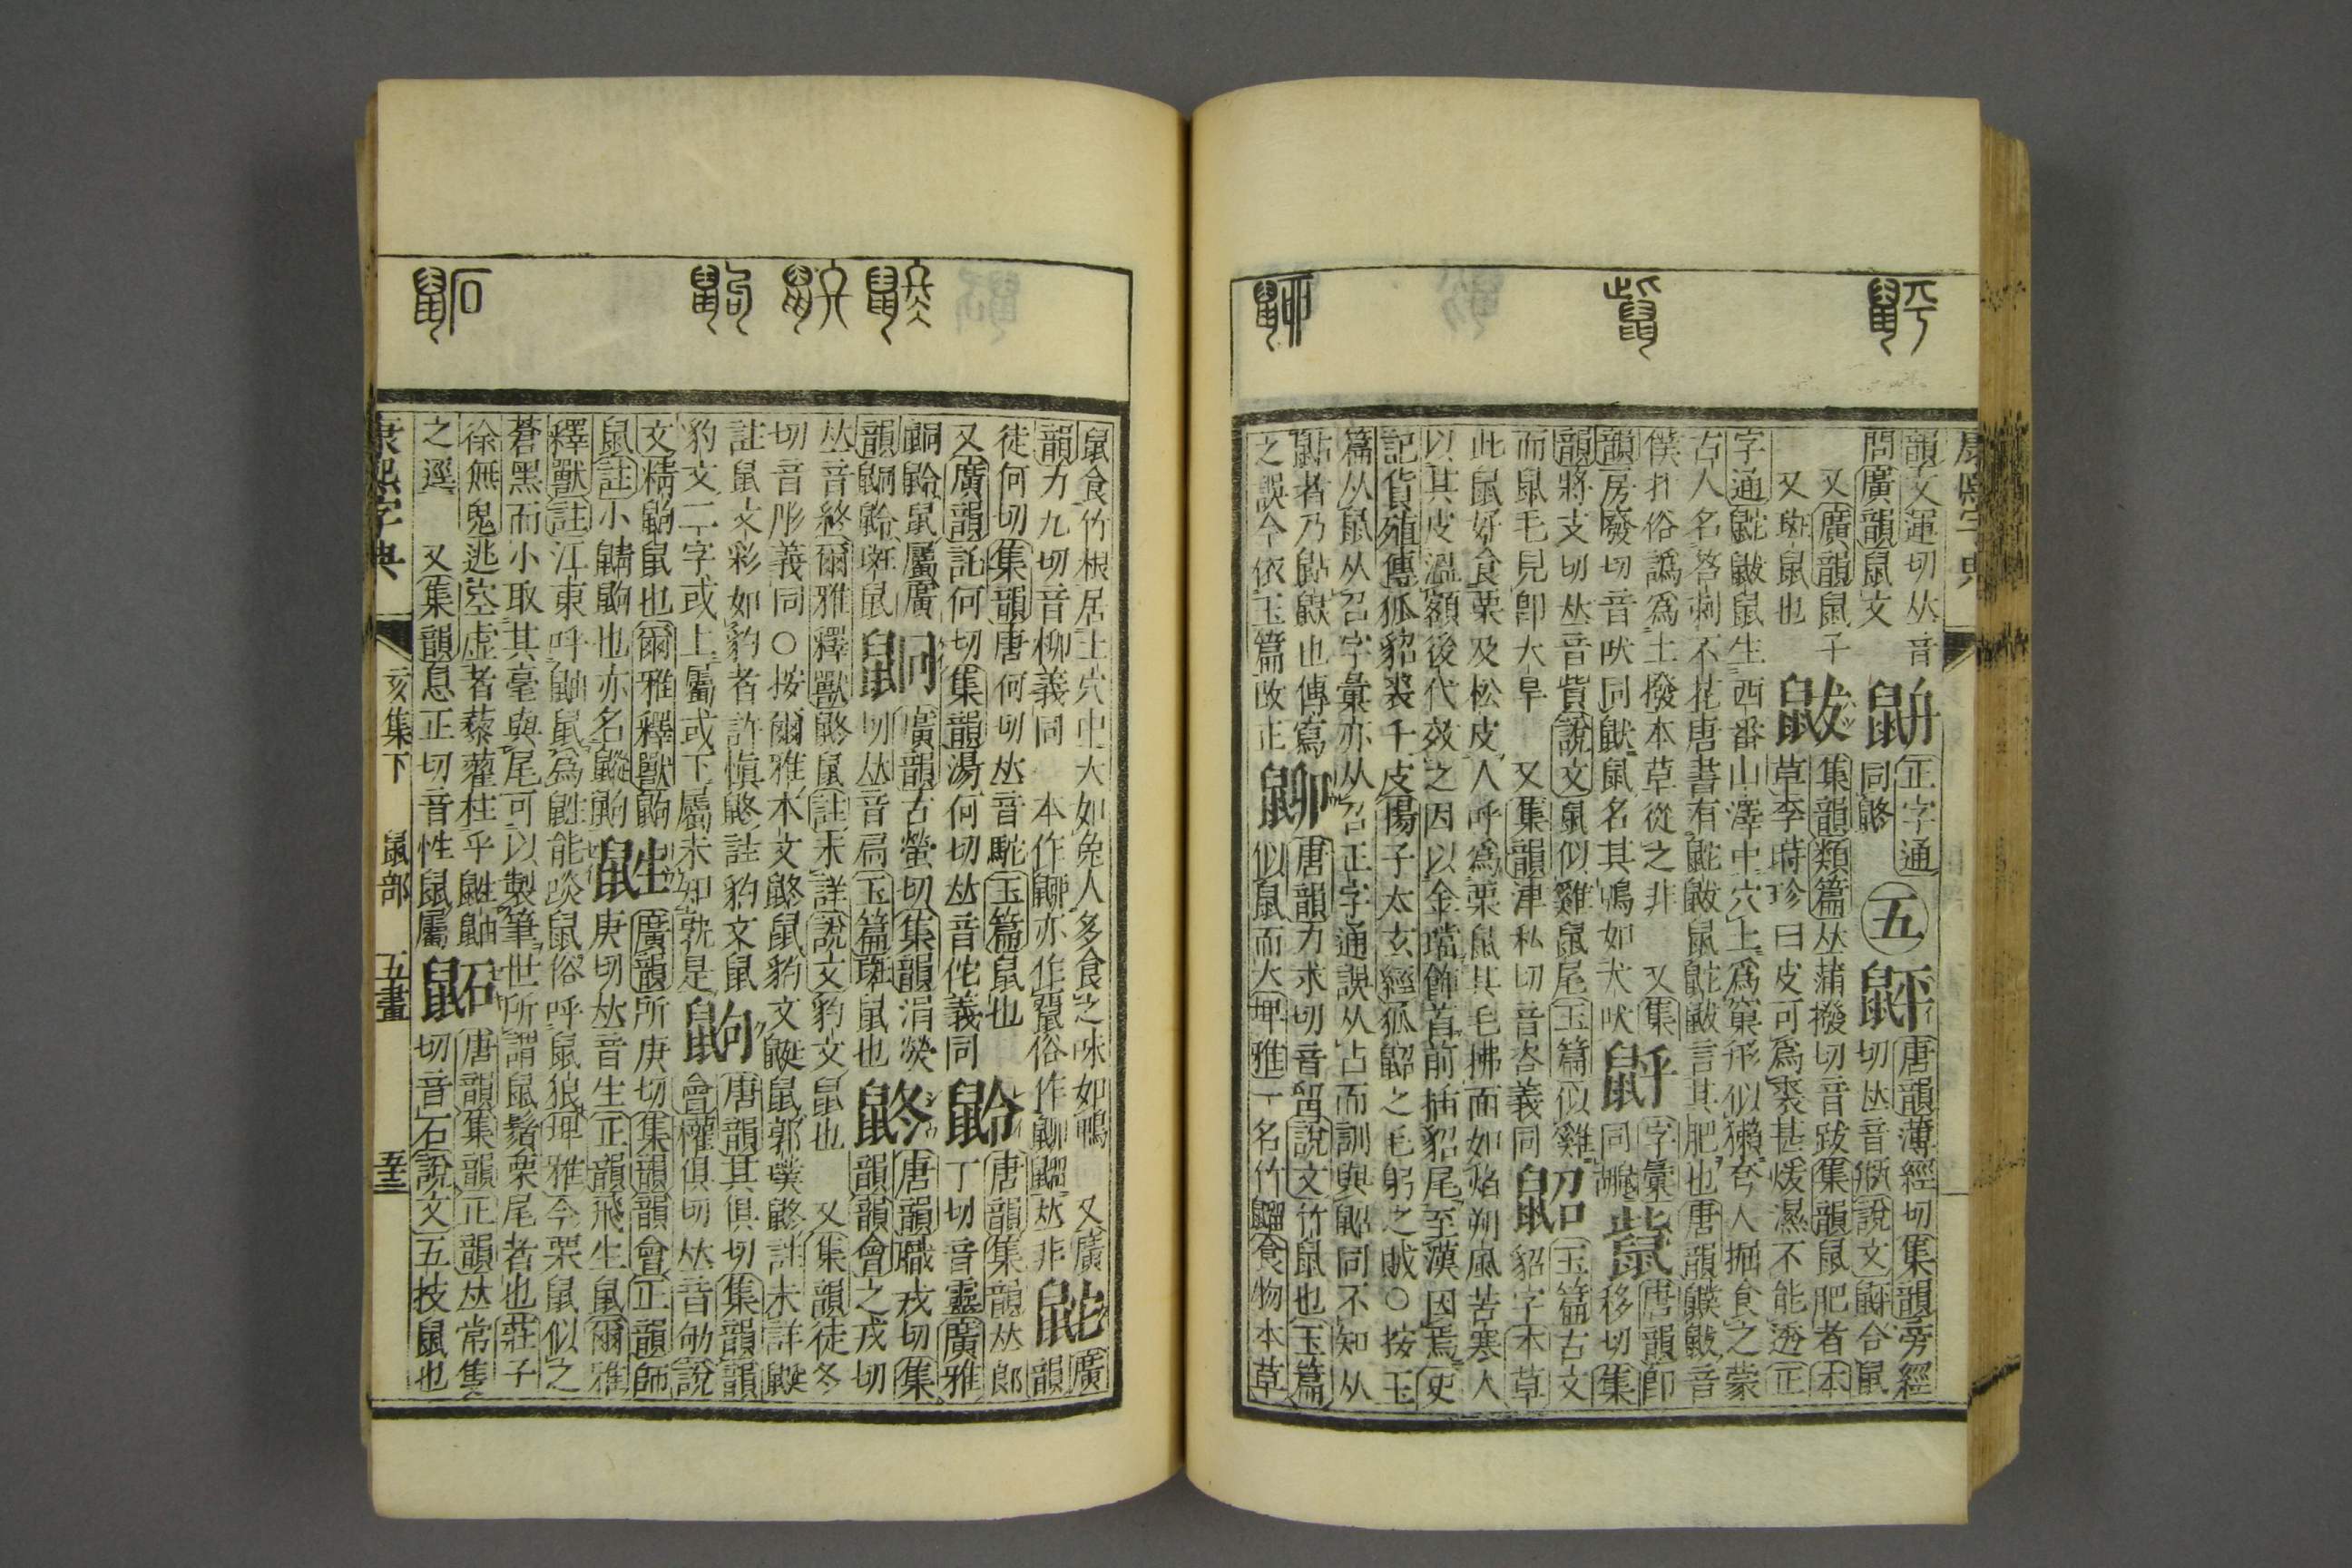 康熙字典
韻文運切𠀤音 正字通 五 䶄 唐韻薄經切集韻旁經
問廣韻鼠文 同鼨 切𠀤音瓶說文䶄令鼠
又廣韻鼠子 鼥 集韻類篇𠀤蒲撥切音跋集韻鼠肥者本
又斑鼠也 草李時珍曰皮可爲裘甚煖濕不能透正
字通鼧鼥鼠生西番山澤中穴土爲窠形似獺夸人掘食之蒙
古人名荅剌不花唐書有鼧鼥鼠鼧鼥言其肥也唐韻䑑鼥音
僕朴俗譌爲土撥本草從之非 又集 字彙 唐韻卽
韻房廢切音吠同鼣鼠名其鳴如犬吠 同 移切集
韻將支切𠀤音貲說文鼠似雞鼠尾玉篇似雞 玉篇古文
而鼠毛見卽大旱 又集韻津私切音咨義同 鼦 貂字本草
此鼠好食栗及松皮人呼爲栗鼠其毛拂面如焰朔風苦寒人
以其皮溫額後代效之因以金璫飾首前插貂尾至漢因焉史
記貨殖傳狐貂裘千皮揚子太玄經狐鼦之毛躬之賊○按玉
篇从鼠从召字彙亦从召正字通誤从占而訓與鼦同不知从
鼠占者乃鼠占鼣也傳寫 唐韻力求切音留說文竹鼠也玉篇
之誤今依玉篇改正 似鼠而大埤雅一名竹䶉食物本草
鼠食竹根居土穴中大如兔人多食之味如鴨 又廣 鼧 廣
韻力九切音柳義同 本作 亦作 俗作 䶉𠀤非 韻
徒何切集韻唐何切𠀤音駝玉篇鼠也 唐韻集韻𠀤郎
又廣韻託何切集韻湯何切𠀤音佗義同 鼯 丁切音靈廣雅
鼠屬廣 廣韻古螢切集韻涓熒 鼨 唐韻職戎切集
韻 斑鼠 切𠀤音扃玉篇斑鼠也 韻韻會之戎切
𠀤音終爾雅釋獸鼨鼠註未詳說文豹文鼠也 又集韻徒冬
切音彤義同○按爾雅本文鼨鼠豹文鼮鼠郭璞鼨註未詳鼮
註鼠文彩如豹者許愼鼨註豹文鼠 鼩 唐韻其俱切集韻韻
豹文二字或上屬或下屬未知孰是 會權俱切𠀤音劬說
文精鼩鼠也爾雅釋獸鼩 鼪 廣韻所庚切集韻韻會正韻師
鼠註小鼱鼩也亦名䶐鼩 庚切𠀤音生正韻飛生鼠爾雅
釋獸註江東呼鼬鼠爲鼪能啖鼠俗呼鼠狼埤雅今栗鼠似之
蒼黑而小取其毫與尾可以製筆世所謂鼠鬚栗尾者也莊子
徐無鬼逃空虛者藜藋柱乎鼪鼬 鼫 唐韻集韻正韻𠀤常隻
之逕 又集韻息正切音性鼠屬 切音石說文五技鼠也
康熙字典 亥集下 鼠部 五畫